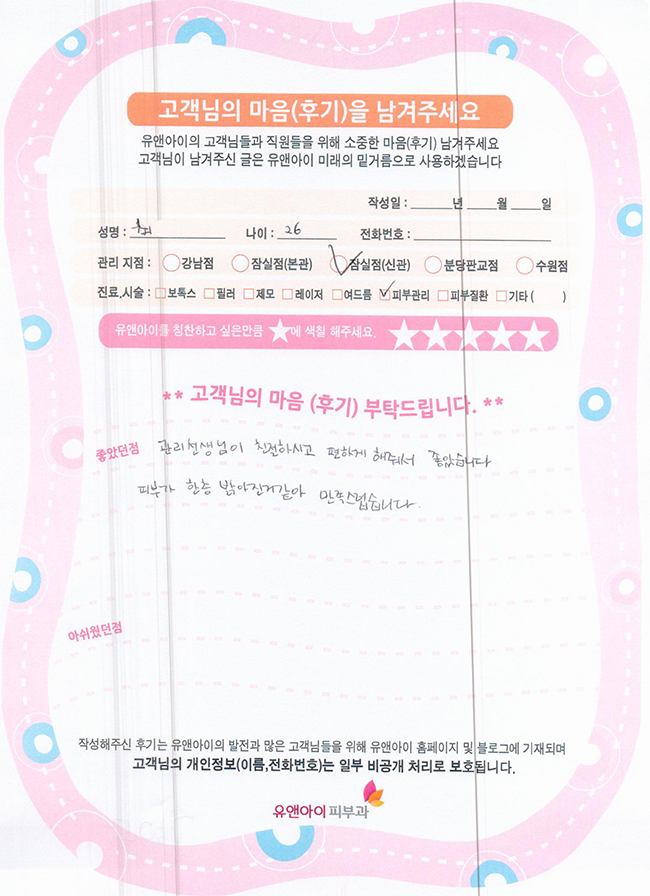 고객님의 마음(후기)을 남겨주세요
유앤아이의 고객님들과 직원들을 위해 소중한 마음(후기) 남겨주세요
고객님이 남겨주신 글은 유앤아이 미래의 밑거름으로 사용하겠습니다
작성일 : ______년 _____월 _____일
성명 : 최 나이 : 26 전화번호 :
관리 지점 : ○강남점 ○잠실점(본관) ○잠실점(신관) ○분당판교점 ○수원점
진료,시술 : □보톡스 □필러 □제모 □레이저 □여드름 ☑피부관리 □피부질환 □기타 ( )
유앤아이를 칭찬하고 싶은만큼 ★에 색칠 해주세요. ★★★★★
** 고객님의 마음 (후기) 부탁드립니다. **
좋았던점 관리선생님이 친절하시고 편하게 해줘서 좋았습니다
피부가 한층 밝아진거같아 만족스럽습니다.
아쉬웠던점
작성해주신 후기는 유앤아이의 발전과 많은 고객님들을 위해 유앤아이 홈페이지 및 블로그에 기재되며
고객님의 개인정보(이름,전화번호)는 일부 비공개 처리로 보호됩니다.
유앤아이 피부과